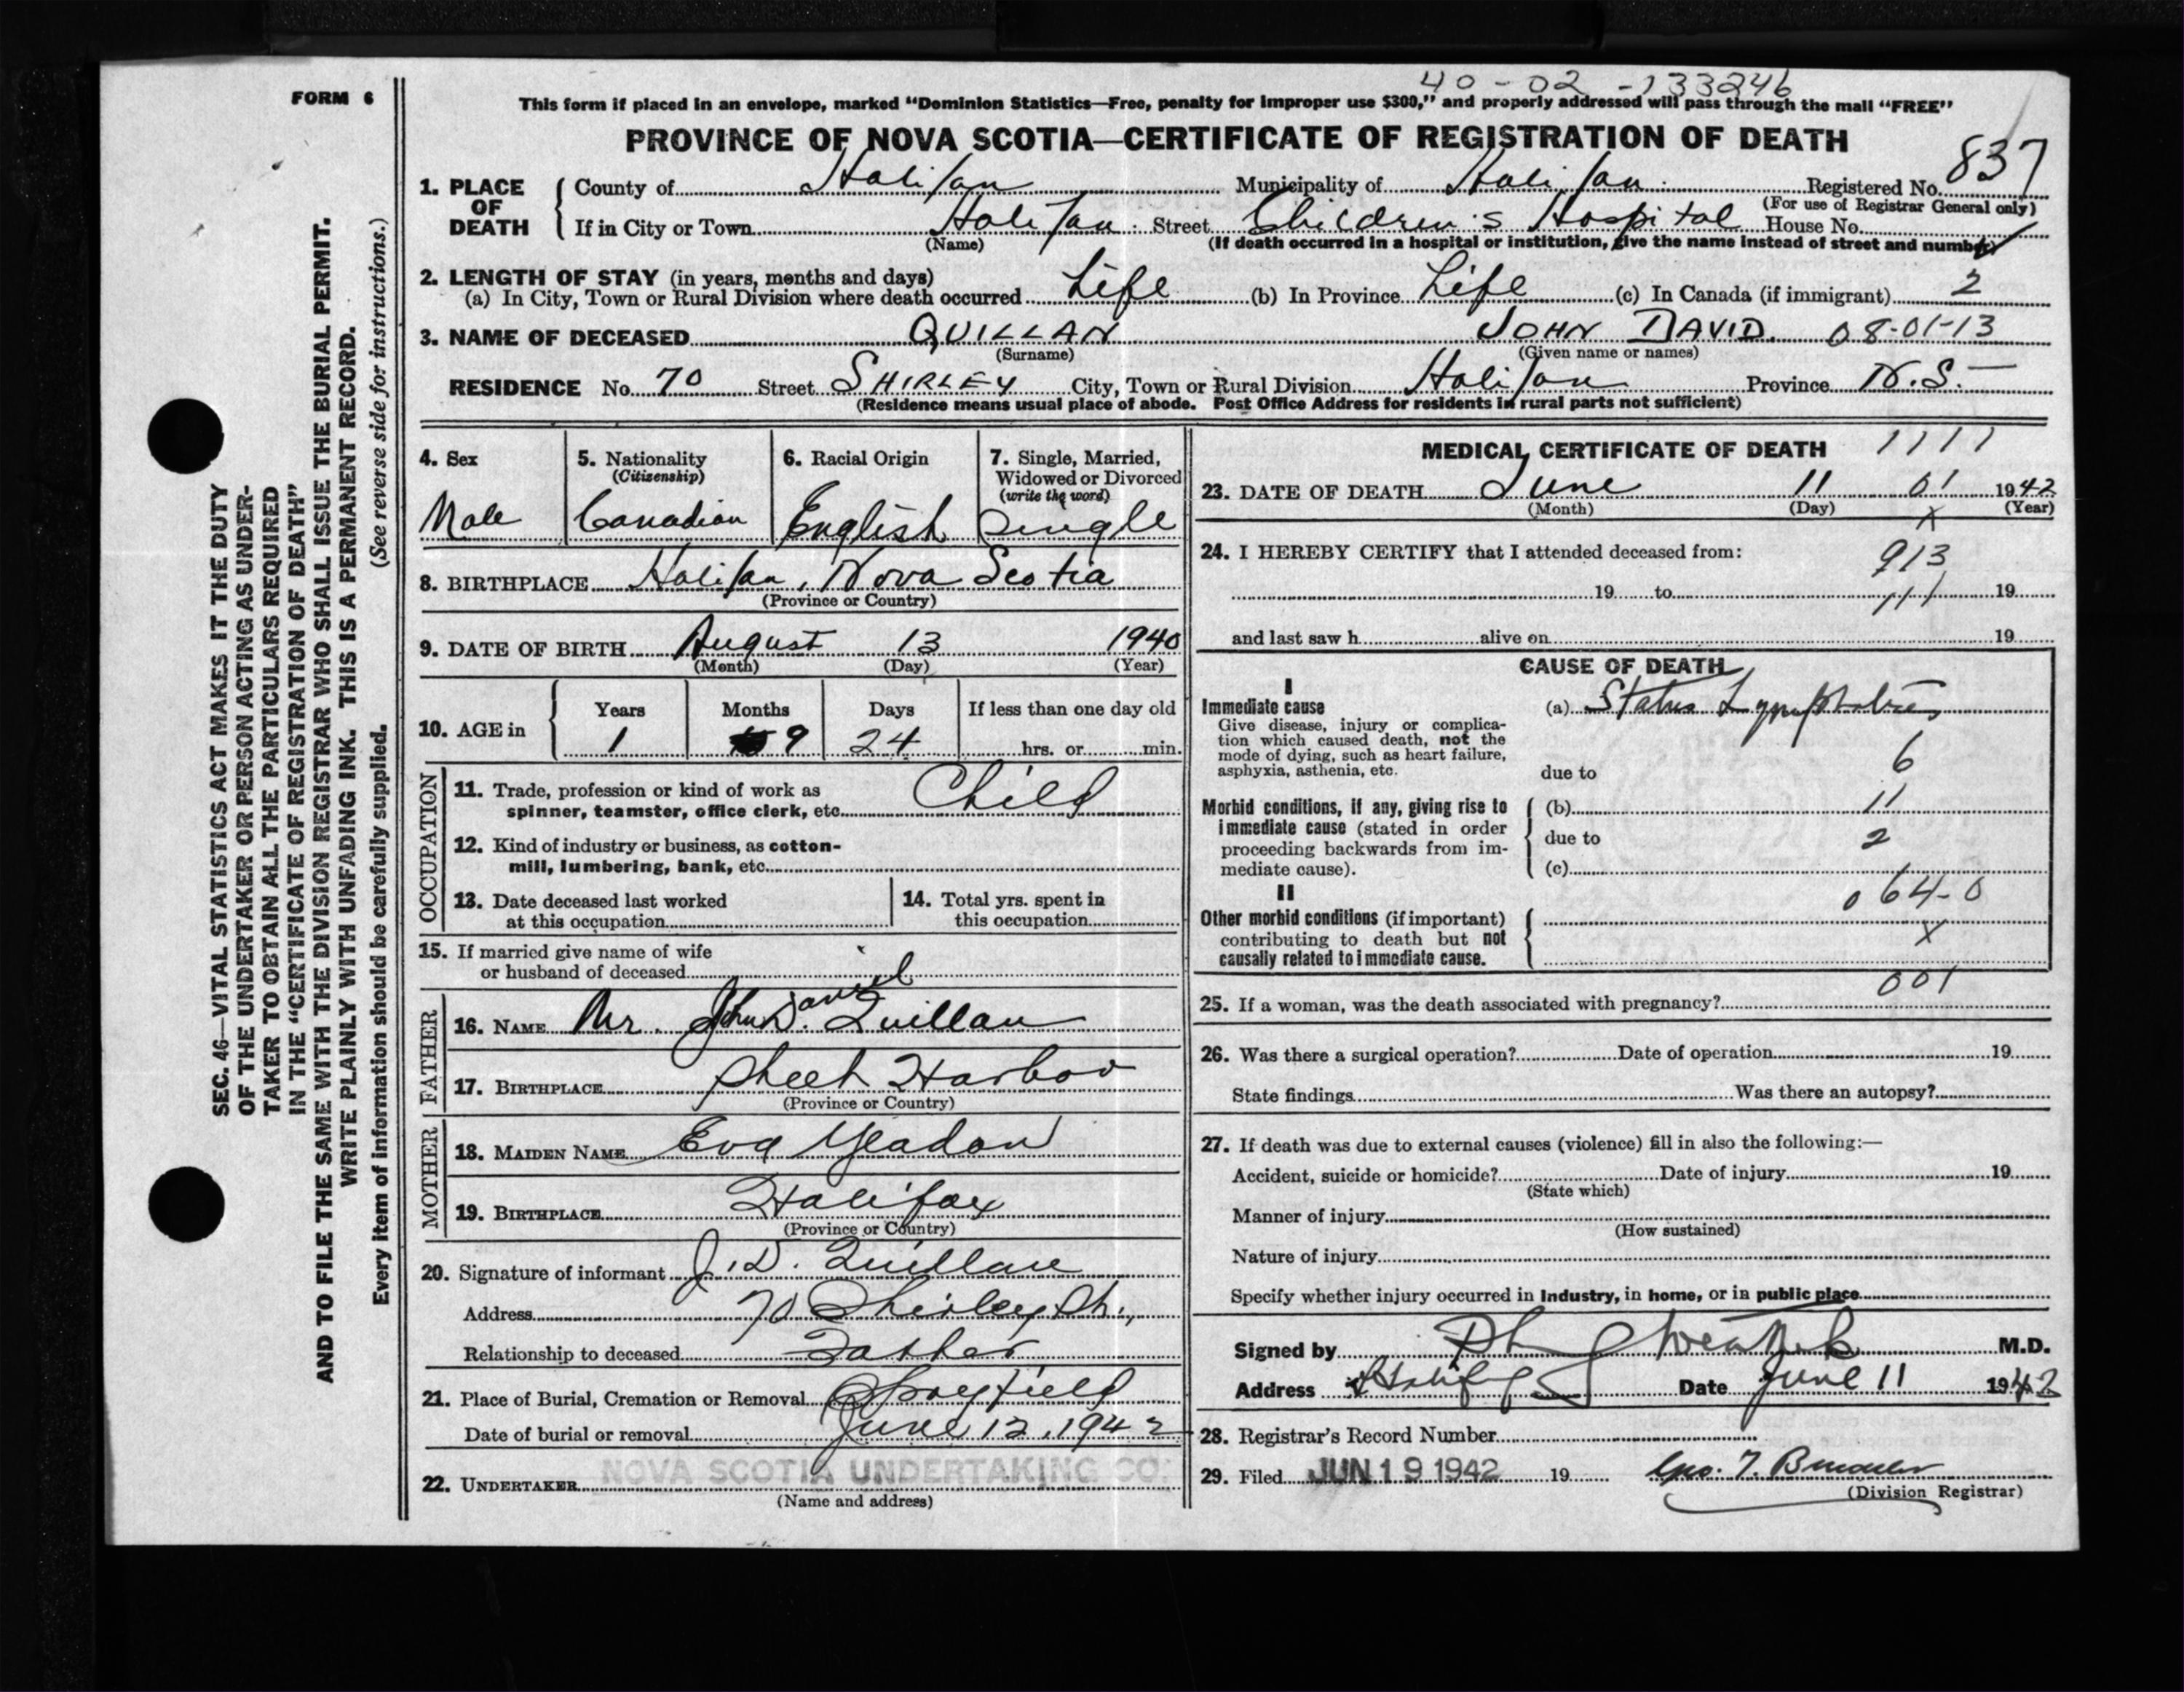 40-02-133246
FORM 6
This form if placed in an envelope, marked "Dominion Statistics—Free, penalty for improper use $300," and properly addressed will pass through the mail "FREE"
PROVINCE OF NOVA SCOTIA—CERTIFICATE OF REGISTRATION OF DEATH
837
1. PLACE OF DEATH County of Halifax Municipality of Halifax Registered No.
(For use of Registrar General only)
If in City or Town Halifax Street Children's Hospital House No.
(Name) (If death occurred in a hospital or institution, give the name instead of street and number)
2. LENGTH OF STAY (in years, months and days)
(a) In City, Town or Rural Division where death occurred Life (b) In Province Life (c) In Canada (if immigrant) 2
3. NAME OF DECEASED QUILLAN JOHN DAVID. 08-01-13
(Surname) (Given name or names)
RESIDENCE No. 70 Street SHIRLEY City, Town or Rural Division Halifax Province N.S.
(Residence means usual place of abode. Post Office Address for residents in rural parts not sufficient)
4. Sex
Male
5. Nationality
(Citizenship)
Canadian
6. Racial Origin
English
7. Single, Married, Widowed or Divorced
(write the word)
Single
8. BIRTHPLACE Halifax, Nova Scotia
(Province or Country)
9. DATE OF BIRTH August 13 1940
(Month) (Day) (Year)
10. AGE in Years Months Days If less than one day old
1 9 24 hrs. or min.
OCCUPATION
11. Trade, profession or kind of work as
spinner, teamster, office clerk, etc. Child
12. Kind of industry or business, as cotton-
mill, lumbering, bank, etc.
13. Date deceased last worked
at this occupation
14. Total yrs. spent in
this occupation
15. If married give name of wife
or husband of deceased
FATHER
16. NAME Mr. John Daniel Quillan
17. BIRTHPLACE Sheet Harbor
(Province or Country)
MOTHER
18. MAIDEN NAME Eva Yeadon
19. BIRTHPLACE Halifax
(Province or Country)
20. Signature of informant J. D. Quillan
Address 70 Shirley St.,
Relationship to deceased Father
21. Place of Burial, Cremation or Removal Spryfield
Date of burial or removal June 12, 1942
22. UNDERTAKER NOVA SCOTIA UNDERTAKING CO.
(Name and address)
MEDICAL CERTIFICATE OF DEATH 1111
23. DATE OF DEATH June 11 01 1942
(Month) (Day) (Year)
X
24. I HEREBY CERTIFY that I attended deceased from:
913
19 to 111 19
and last saw h alive on 19
CAUSE OF DEATH
I
Immediate cause
Give disease, injury or complica-
tion which caused death, not the
mode of dying, such as heart failure,
asphyxia, asthenia, etc.
(a) Status Lymphaticus
6
due to
Morbid conditions, if any, giving rise to
immediate cause (stated in order
proceeding backwards from im-
mediate cause).
(b) 11
due to 2
(c)
064-0
II
Other morbid conditions (if important)
contributing to death but not
causally related to immediate cause.
X
001
25. If a woman, was the death associated with pregnancy?
26. Was there a surgical operation? Date of operation 19
State findings Was there an autopsy?
27. If death was due to external causes (violence) fill in also the following:—
Accident, suicide or homicide? Date of injury 19
(State which)
Manner of injury
(How sustained)
Nature of injury
Specify whether injury occurred in Industry, in home, or in public place
Signed by M.D.
Address Halifax Date June 11 1942
28. Registrar's Record Number
29. Filed JUN 19 1942 19
(Division Registrar)
SEC. 46—VITAL STATISTICS ACT MAKES IT THE DUTY
OF THE UNDERTAKER OR PERSON ACTING AS UNDER-
TAKER TO OBTAIN ALL THE PARTICULARS REQUIRED
IN THE "CERTIFICATE OF REGISTRATION OF DEATH"
AND TO FILE THE SAME WITH THE DIVISION REGISTRAR WHO SHALL ISSUE THE BURIAL PERMIT.
WRITE PLAINLY WITH UNFADING INK. THIS IS A PERMANENT RECORD.
Every item of information should be carefully supplied. (See reverse side for instructions.)